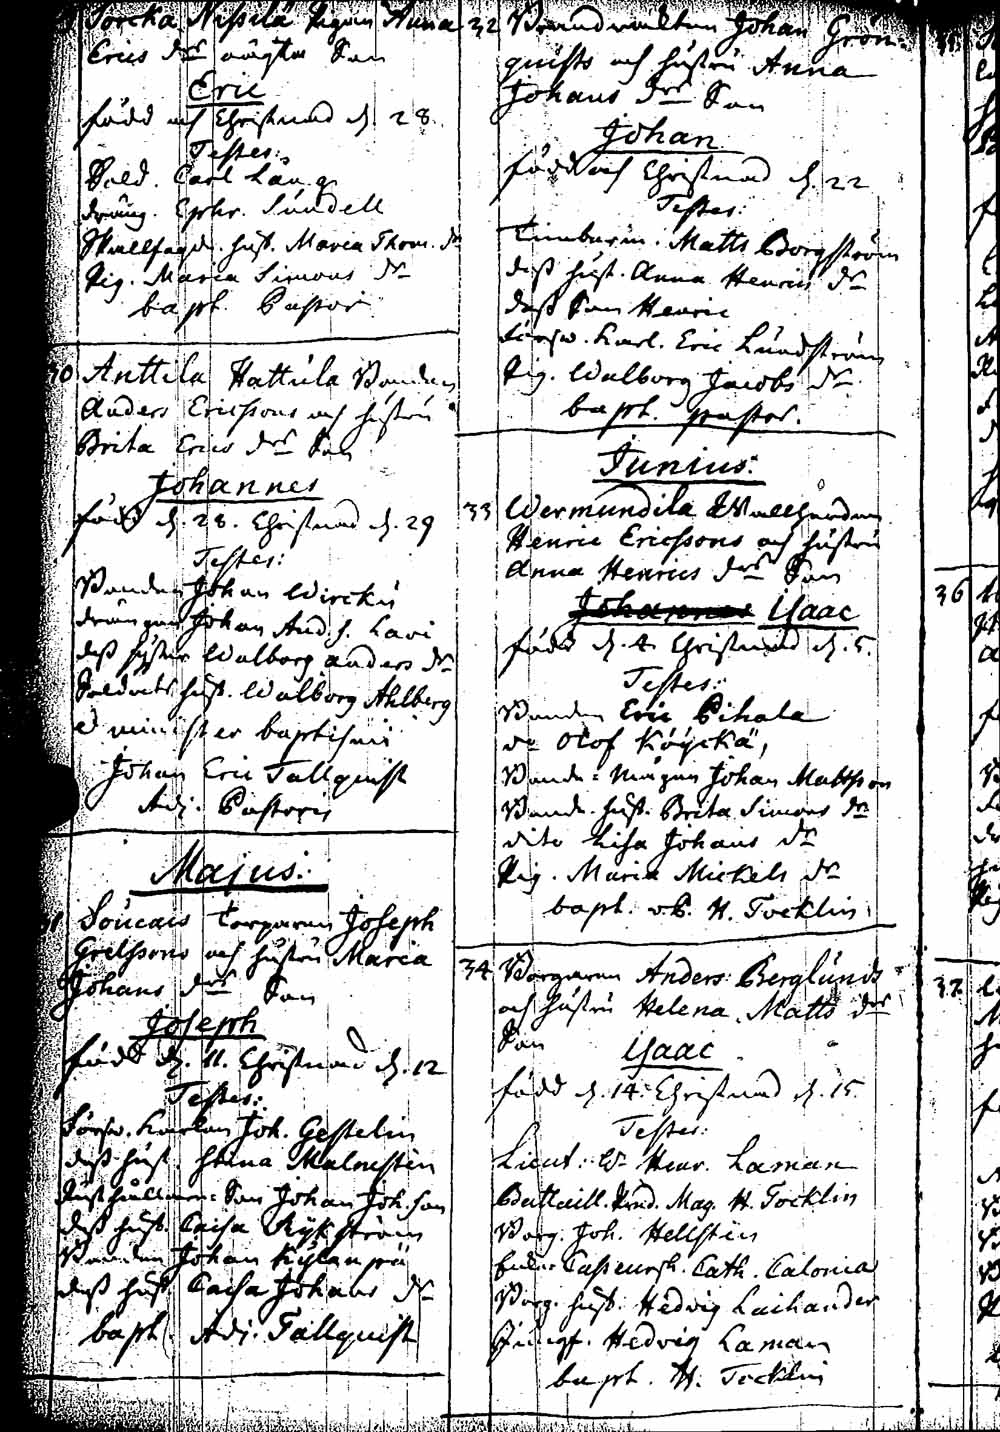 Torcka Nissilä Pigan Anna
Erics dr oägta Son
Eric
född och Christnad d. 28.
Testes:
Sold. Carl Lång
dräng. Ephr. Sundell
hust. Maria Thom. dr
Pig. Maria Simons dr
bapt. Pastor
30 Anttila Hattula Bonden
Anders Ericssons och hustru
Brita Erics drs Son
Johannes
född d. 28. Christnad d. 29
Testes:
Bonden Johan Wircki
drängen Johan And. s. Lavi
dess syster Walborg Anders dr
Soldats hust. Walborg Ahlberg
e minister baptismi
Johan Eric Tallquist
Adj. Pastoris
Majus:
31 Soucais Torparen Joseph
Grelssons och hustru Maria
Johans drs Son
Joseph
född d. 11. Christnad d. 12
Testes:
Försw. Karlen Joh. Gestelin
dess hust. Stina Malmsten
Son Johan Joh. son
dess hust. Caisa Rykström
Bonden Johan Kylänpä
dess hust. Caisa Johans dr
bapt. Adj. Tallquist
32 Brandvakten Johan Grön-
quists och hustru Anna
Johans drs Son
Johan
född och Christnad d. 22
Testes:
Timberm. Matts Borgström
dess hust. Anna Henrics dr
dess Son Henric
Försw. Karl. Eric Lundström
Pig. Walborg Jacobs dr
bapt. pastor.
Junius:
33 Wermundila
Henric Ericssons och hustru
Anna Henrics drs Son
Johannes Isaac
född d. 4. Christnad d. 5.
Testes:
Bonden Eric Pihala
do Olof Köyckä,
Bonde-mågen Johan Mattsson
Bond. hust. Brita Simons dr
dito Lisa Johans dr
Pig. Maria Mickels dr
bapt. v.P. H. Tocklin
34 Borgaren Anders Berglunds
och hustru Helena Matts drs
Son Isaac
född d. 14. Christnad d. 15.
Testes:
Lieut. W. Henr. Laman
Bataill. Pred. Mag. H. Tocklin
Borg. Joh. Hellsten
Cath. Calonia
Borg. hust. Hedvig Laihander
Jungf. Hedvig Laman
bapt. H. Tocklin
36
37